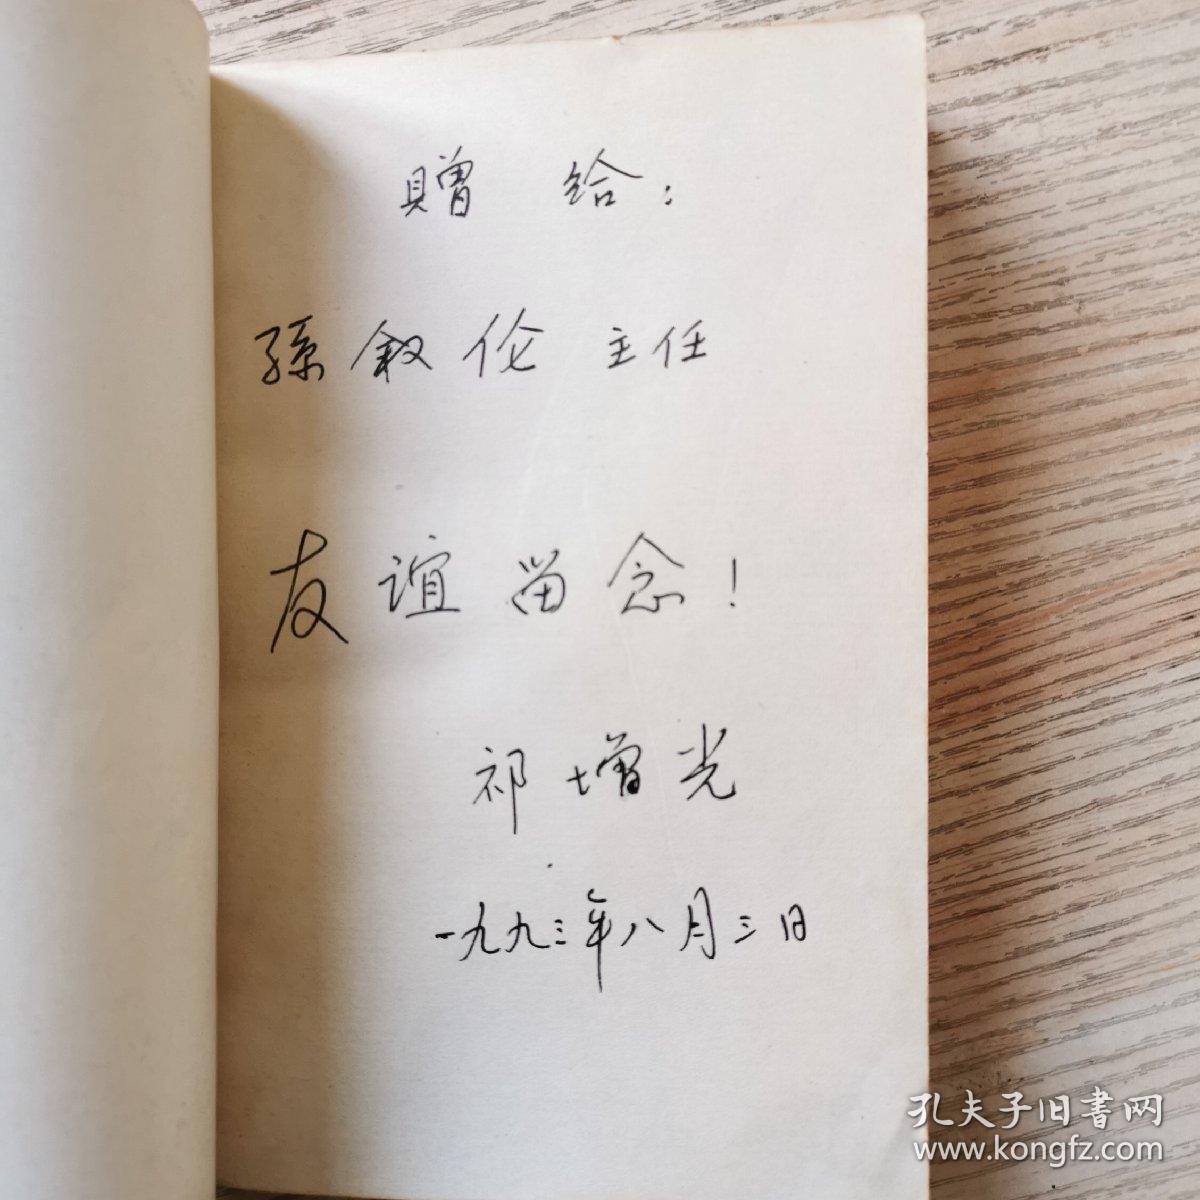 贈 给：
孫叙伦 主任
友谊留念！
祁增光
一九九三年八月三日
孔夫子旧书网
www.kongfz.com